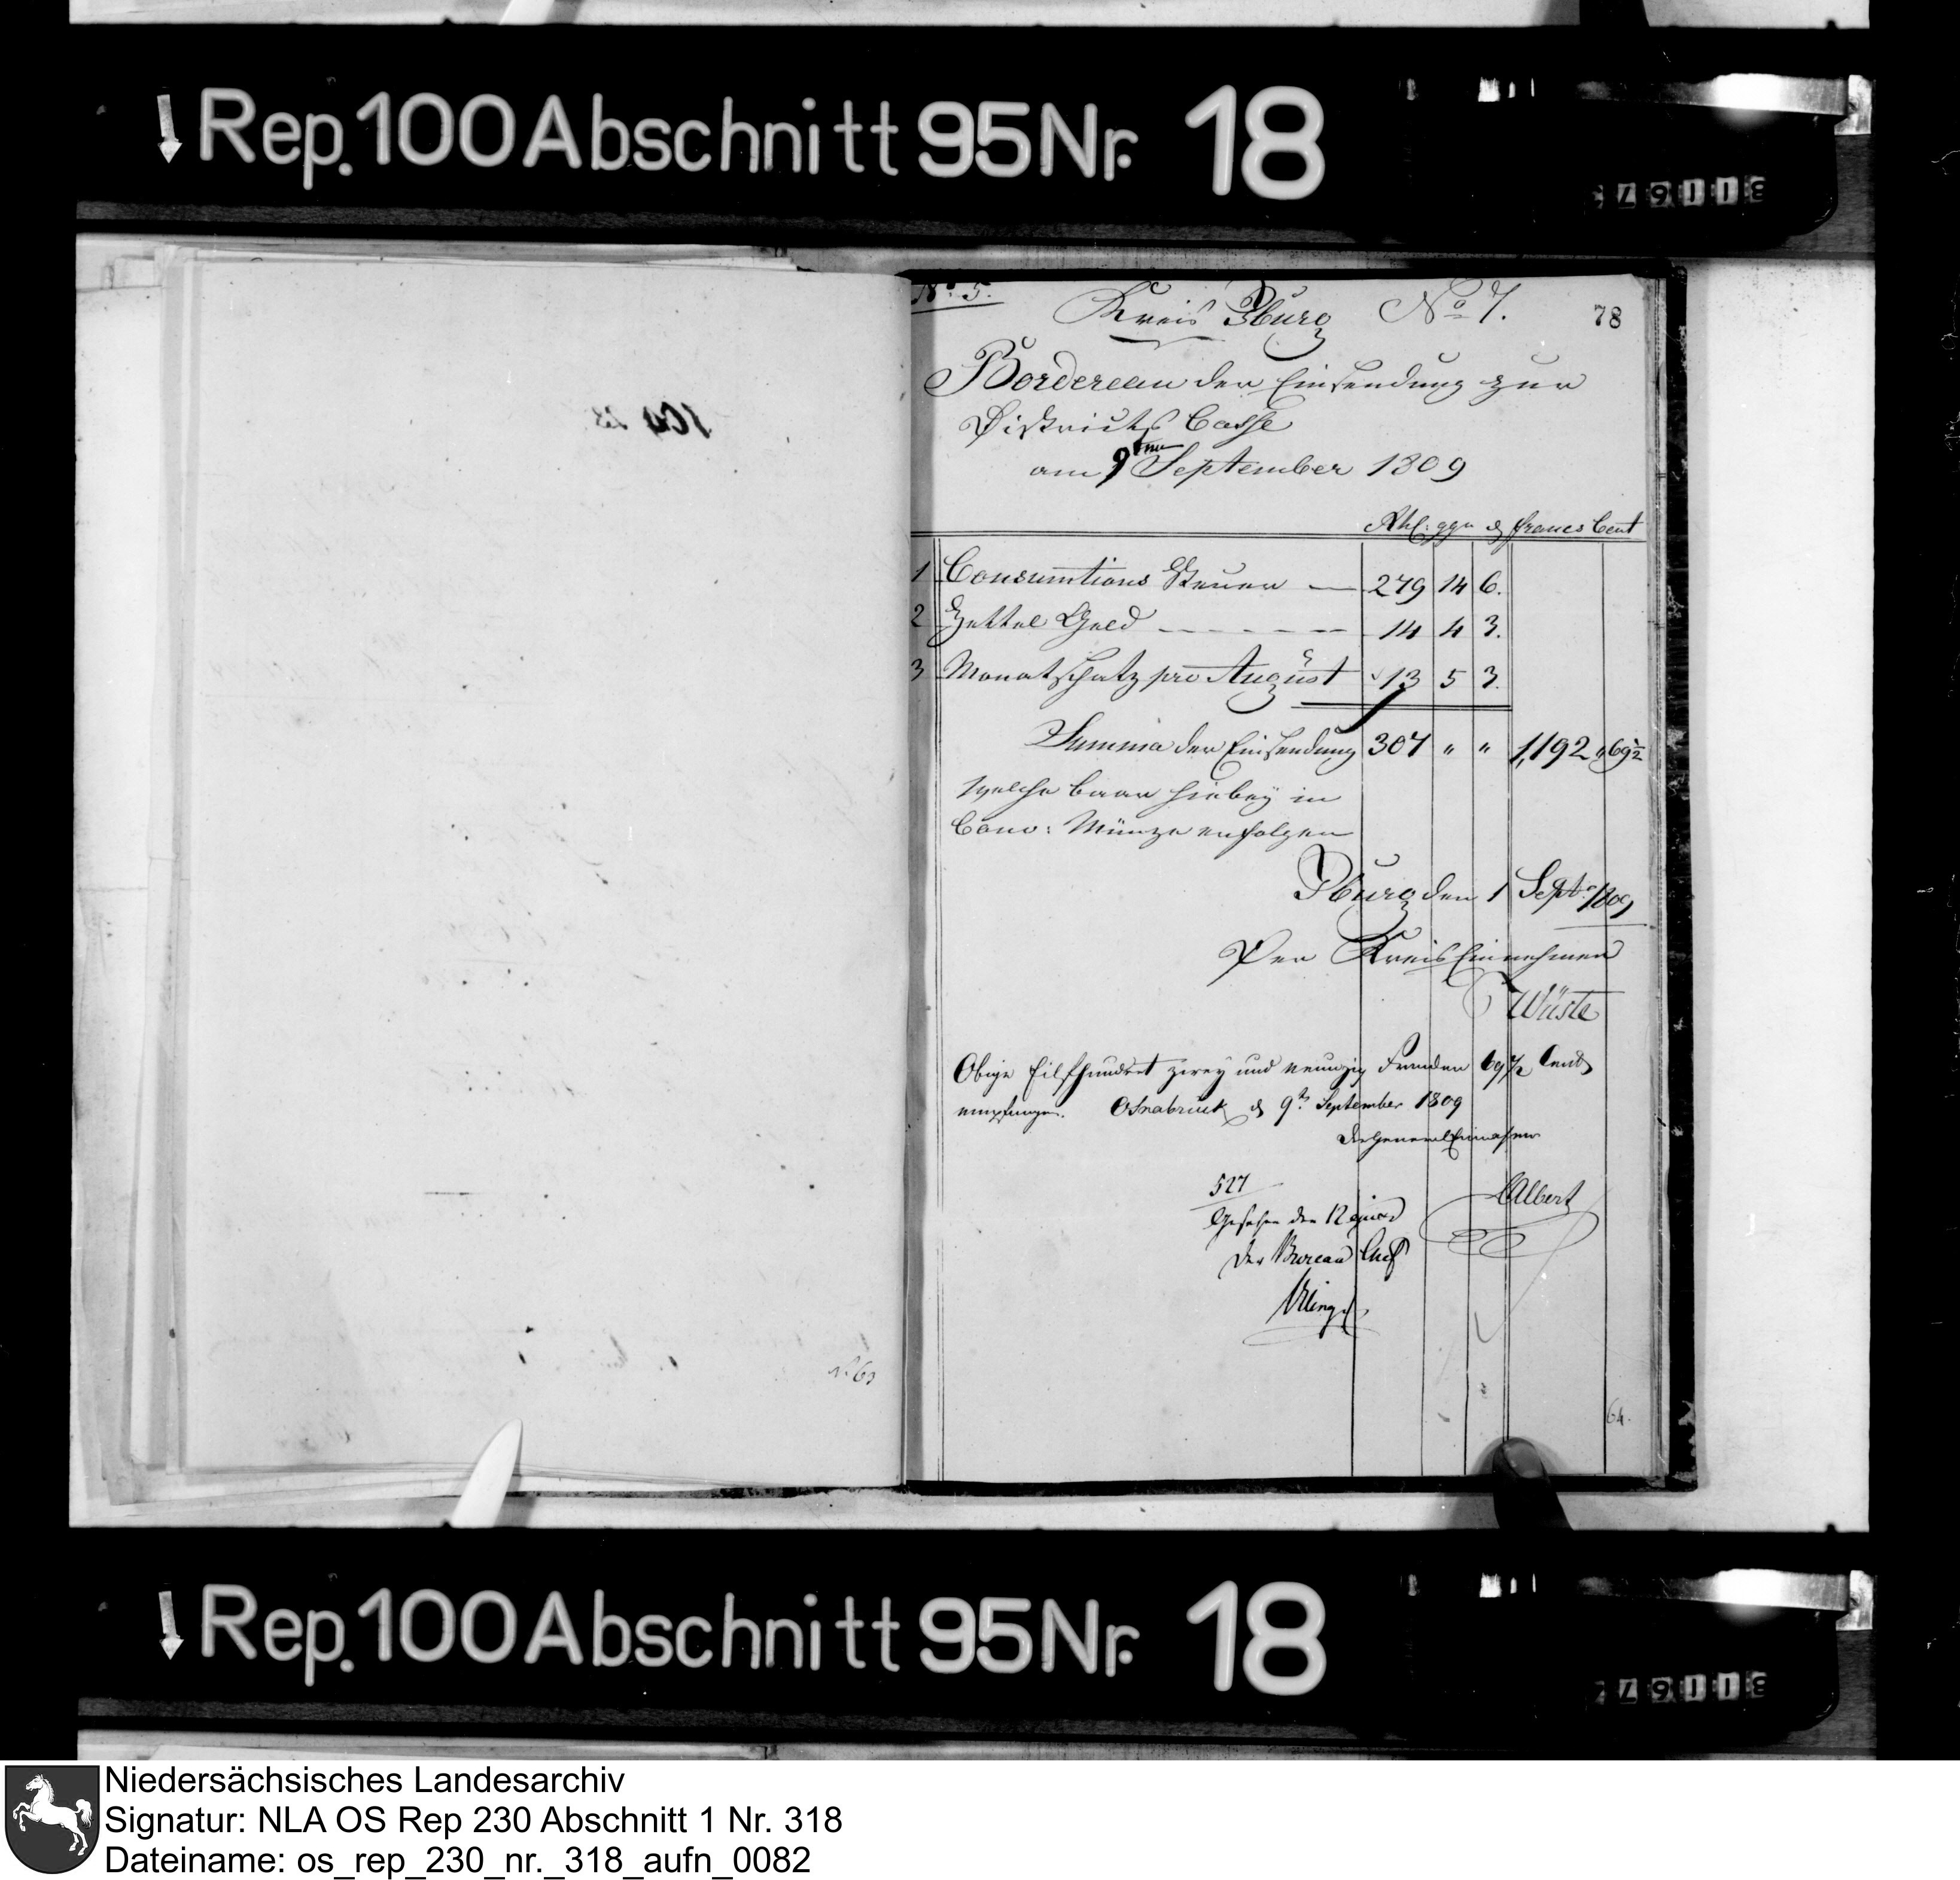 Rep. 100 Abschnitt 95 Nr. 18
No. 5.
Kreis Iburg No 7.
78
Bordereau der Einsendung zur
Districts Casse
am 9ten September 1809
Rthl. ggr ₰ francs Cent
1 Consumtions Steuer — 279 14 6.
2 Zettel Geld - - - - - 14 4 3.
3 Monatschatz pro August 13 5 3.
Summa der Einsendung 307 " " 1,192 " 69½
welche baar hiebey in
Conv: Münze erfolgen
Iburg den 1 Sept. 1809
Der Kreis Einnehmer
Wüste
Obige Eilfhundert zwey und neunzig Franken 69½ Cent
empfangen. Osnabrück d 9t. September 1809
Der General Einnehmer
Albert
527
Gesehen den 12
Der Bureau Chef
64.
Rep. 100 Abschnitt 95 Nr. 18
Niedersächsisches Landesarchiv
Signatur: NLA OS Rep 230 Abschnitt 1 Nr. 318
Dateiname: os_rep_230_nr._318_aufn_0082